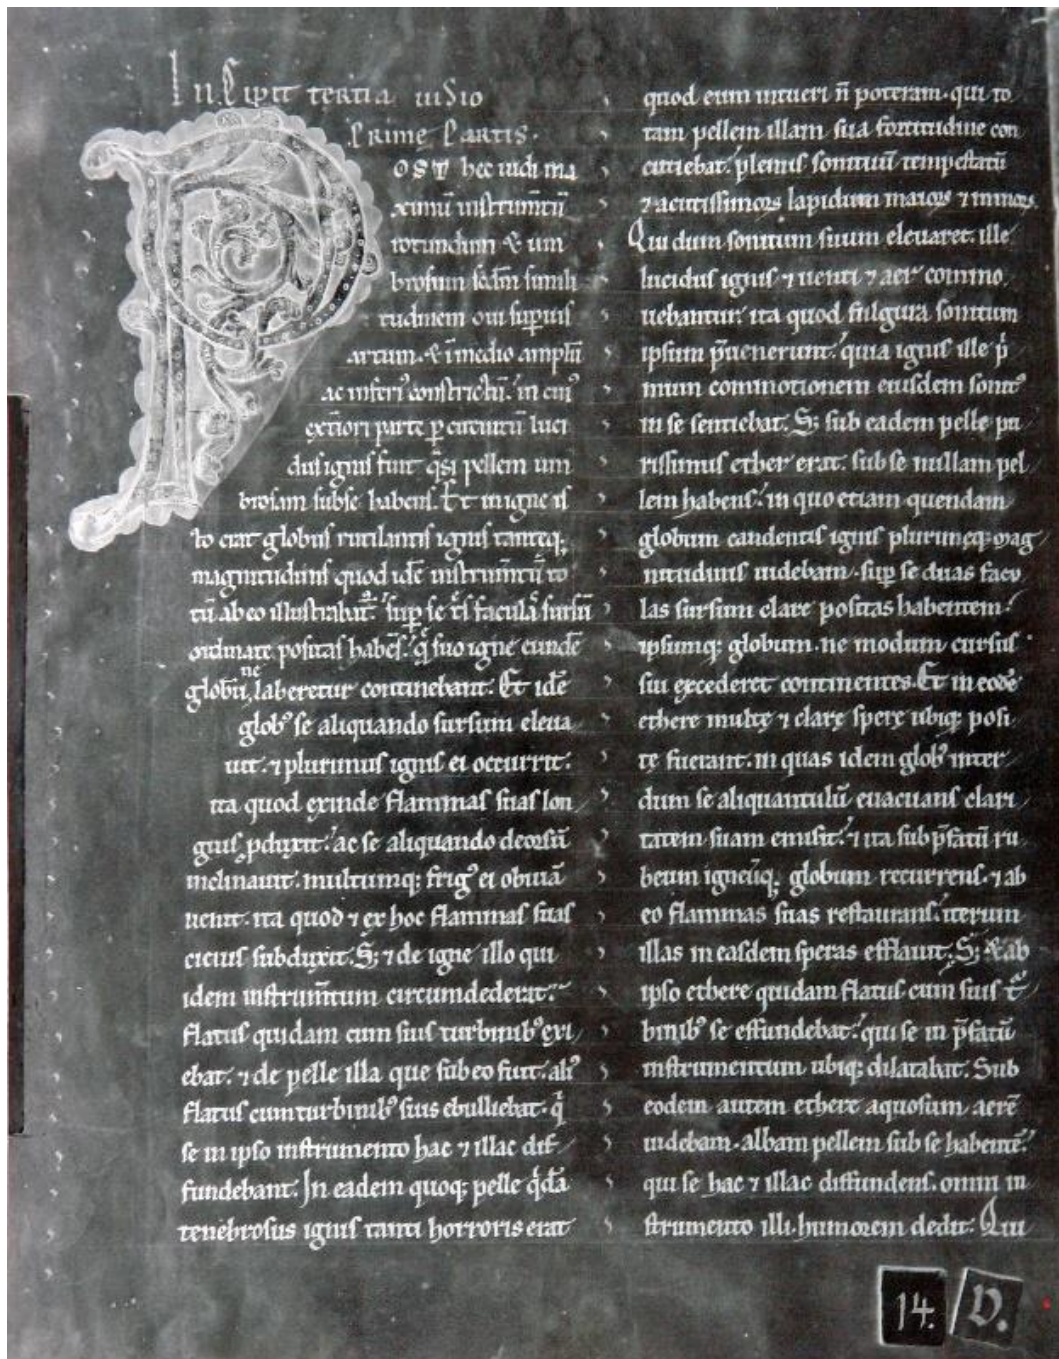 Incipit tertia uisio
prime partis.
POST hec uidi ma
ximū instrum̄tū
rotundum & um
brosum scḋm simili
tudinem oui suꝑius
artum. & ī medio amplū
ac inferiꝰ constrictū. in cuiꝰ
ext̄iori parte ꝑ circuitū luci
dus ignis fuit q̃si pellem um
brosam subse habens. Et in igne is
to erat globus rutilantis ignis tanteq;
magnitudinis quod idē instrum̄tū to
tū ab eo illustrabat᷑. suꝑ se t̃s faculas sursū
ordinate positas habēs. q̃ suo igne eundē
globū, ne laberetur continebant. Et idē
globꝰ se aliquando sursum eleua
uit. ⁊ plurimus ignis ei occurrit.
ita quod exinde flammas suas lon
gius ꝓduxit. ac se aliquando deorsū
inclinauit. multumq; frigꝰ ei obuiā
uenit. ita quod ⁊ ex hoc flammas suas
cicius subduxit. S; ⁊ de igne illo qui
idem instrum̄tum circumdederat.
flatus quidam cum suis turbinibꝰ exi
ebat. ⁊ de pelle illa que sub eo fuit. aliꝰ
flatus cum turbinibꝰ suis ebulliebat. q̇
se in ipso instrumento hac ⁊ illac dif
fundebant. In eadem quoq; pelle q̇dā
tenebrosus ignis tanti horroris erat
quod eum intueri n̄ poteram. qui to
tam pellem illam sua fortitudine con
cutiebat. plenus sonituū tempestatū
⁊ acutissimoꝝ lapidum maioꝝ ⁊ minoꝝ.
Qui dum sonitum suum eleuaret. ille
lucidus ignis ⁊ uenti ⁊ aer commo
uebantur. ita quod fulgura sonitum
ipsum p̄uenerunt. quia ignis ille ṗ
mum commotionem eiusdem sonitꝰ
in se sentiebat. S; sub eadem pelle pu
rissimus ether erat. sub se nullam pel
lem habens. in quo etiam quendam
globum candentis ignis plurimeq; mag
nitudinis uidebam. suꝑ se duas facu
las sursum clare positas habentem.
ipsumq; globum. ne modum cursus
sui excederet continentes. Et in eodē
ethere multę ⁊ clarę sperę ubiq; posi
tę fuerant. in quas idem globꝰ inter
dum se aliquantulū euacuans clari
tatem suam emisit. ⁊ ita sub p̄fatū ru
beum igneūq; globum recurrens. ⁊ ab
eo flammas suas restaurans. iterum
illas in easdem speras efflauit. S; & ab
ipso ethere quidam flatus cum suis t᷑
binibꝰ se effundebat. qui se in p̄fatū
instrumentum ubiq; dilatabat. Sub
eodem autem ethere aquosum aerē
uidebam. albam pellem sub se habentē.
qui se hac ⁊ illac diffundens. omni in
strumento illi humorem dedit. Qui
14. V.